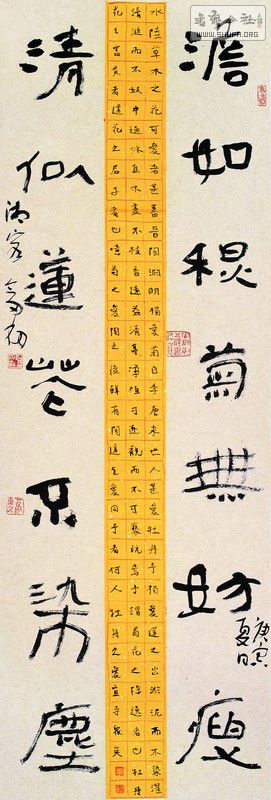 澹如穐菊無妨瘦
庚寅
夏日
水陸草木之花可愛者甚蕃晉陶淵明獨愛菊自李唐來世人甚愛牡丹予獨愛蓮之出淤泥而不染濯
清漣而不妖中通外直不蔓不枝香遠益清亭亭淨植可遠觀而不可褻玩焉予謂菊花之隱逸者也牡丹
花之富貴者蓮花之君子者也噫菊之愛陶之後鮮有聞蓮之愛同予者何人牡丹之愛宜乎眾矣
清似蓮花不染塵
WWW.SHUFA.ORG